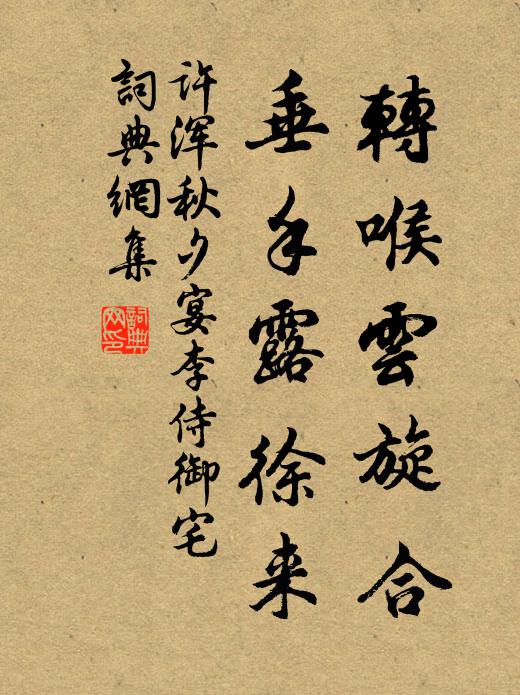 轉喉雲旋合
垂手露徐来
许浑秋夕宴李侍御宅
詞典網集
詞典網印